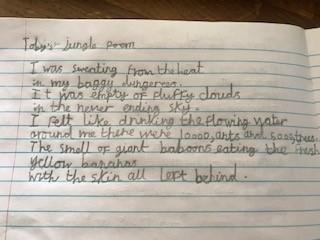 Toby's jungle poem
I was sweating from the heat
in my baggy dungerees.
It was empty of fluffy clouds
in the never ending sky.
I felt like drinking the flowing water
around me there were 10000, ants and 5000 trees.
The smell of giant baboons eating the fresh
yellow bananas
with the skin all left behind.